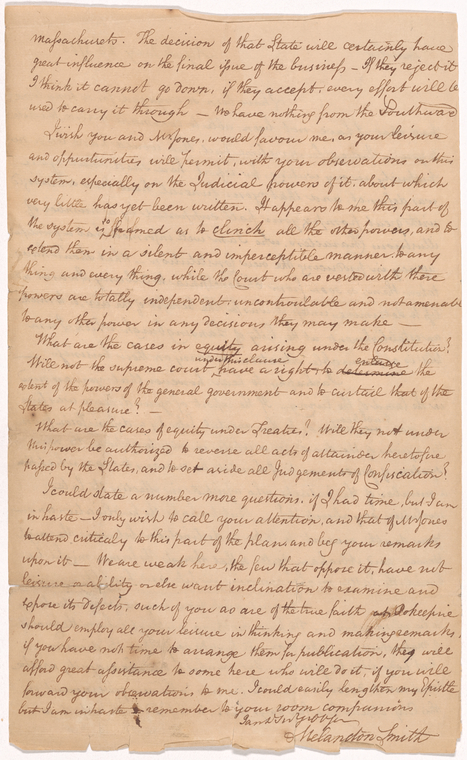 massachusets. The decision of that State will certainly have
great influence on the final issue of the business – If they reject it
I think it cannot go down, if they accept, every effort will be
used to carry it through – We have nothing from the Southward
I wish you and Mr Jones, would favour me, as your leisure
and oppertunities will permit, with your observations on this
system, especially on the Judicial powers of it, about which
very little has yet been written. It appears to me this part of
the system is so framed as to clinch all the other powers, and to
extend them in a silent and imperceptible manner to any
thing and every thing, while the Court who are vested with these
powers are totally independent, uncontroulable and not amenable
to any other power in any decisions they may make –
What are the cases in equity arising under the Constitution?
Will not the supreme court under this clause have a right to determine enlarge the
extent of the powers of the general government and to curtail that of the
States at pleasure? –
What are the cases of equity under Treaties? Will they not under
this power be authorized to reverse all acts of attainder heretofore
passed by the States, and to set aside all Judgements of Confiscation?
I could state a number more questions, if I had time, but I am
in haste – I only wish to call your attention, and that of Mr Jones
to attend critically to this part of the plan and beg your remarks
upon it – We are weak here, the few that oppose it, have not
leisure or ability or else want inclination to examine and
expose its defects, such of you as are of the true faith at Pokeepsie
should employ all your leisure in thinking and making remarks,
if you have not time to arrange them for publication, they will
afford great assistance to some here who will do it, if you will
forward your observations to me. I could easily lengthen my Epistle
but I am in haste – remember to your room companions
I am
Melancton Smith